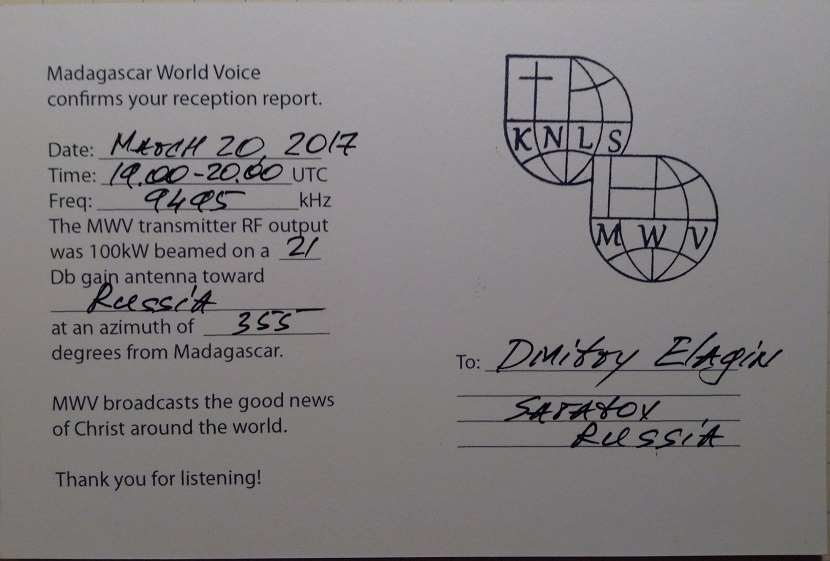 Madagascar World Voice
confirms your reception report.
Date: MARCH 20, 2017
Time: 19.00-20.00 UTC
Freq: 9495 kHz
The MWV transmitter RF output
was 100kW beamed on a 21
Db gain antenna toward
Russia
at an azimuth of 355
degrees from Madagascar.
MWV broadcasts the good news
of Christ around the world.
Thank you for listening!
KNLS
MWV
To: Dmitry Elagin
SARATOV
Russia